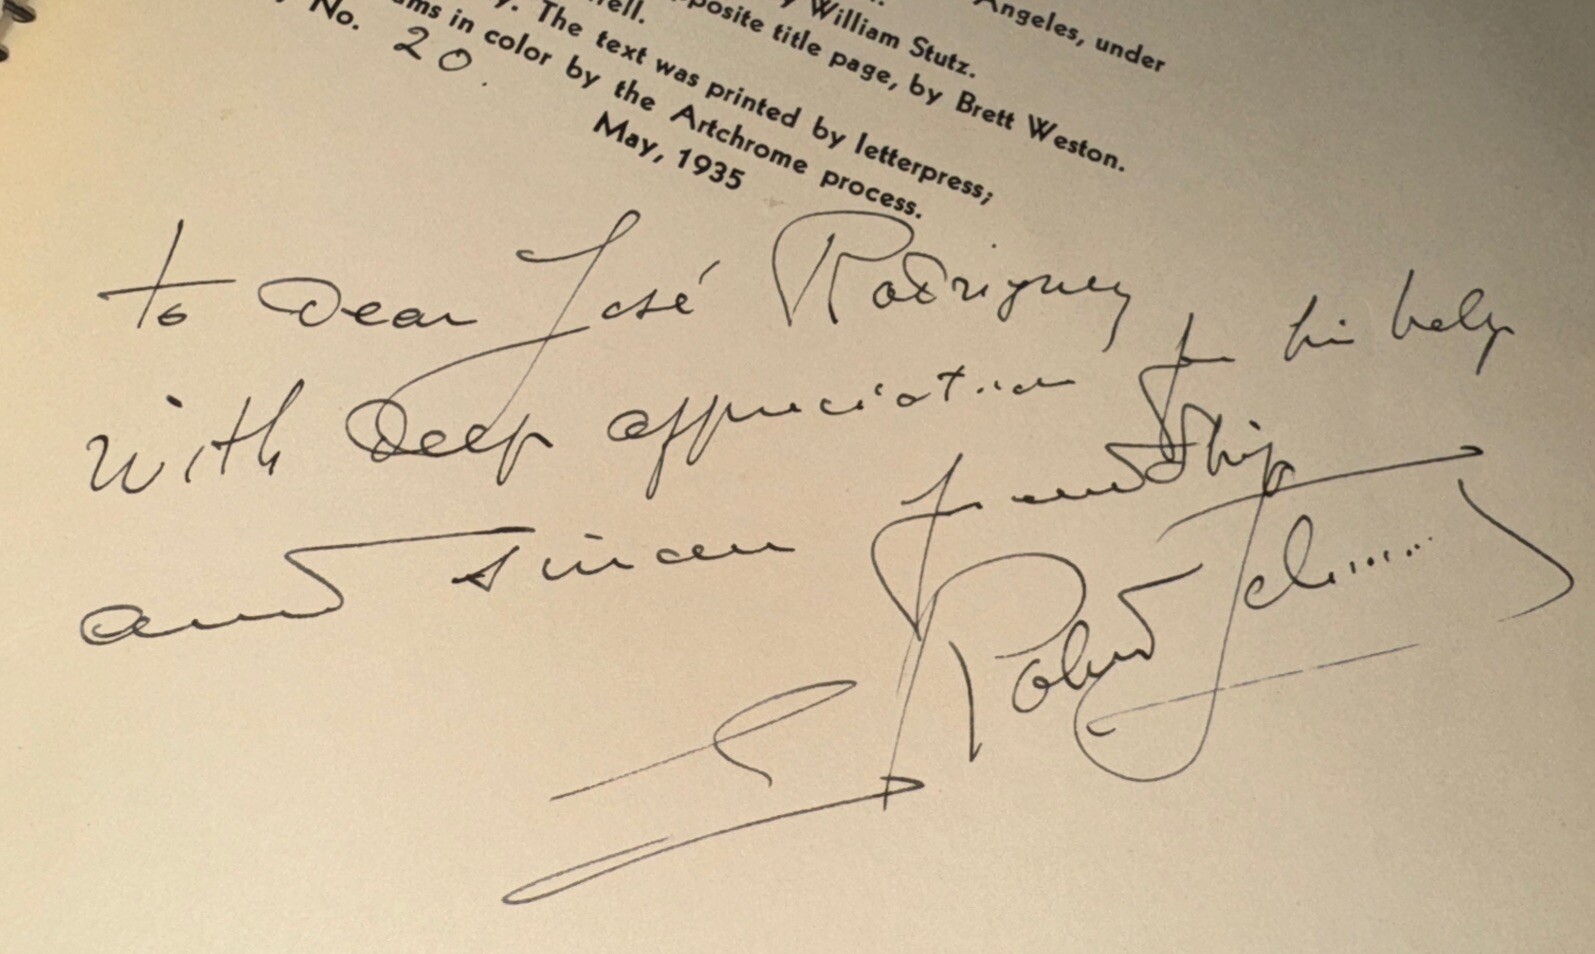 Angeles, under
William Stutz.
posite title page, by Brett Weston.
The text was printed by letterpress;
ams in color by the Artchrome process.
May, 1935
No. 20.
to Dear José Rodriguez
with Deep appreciation for his help
and sincere friendship
E Robert Schmitz